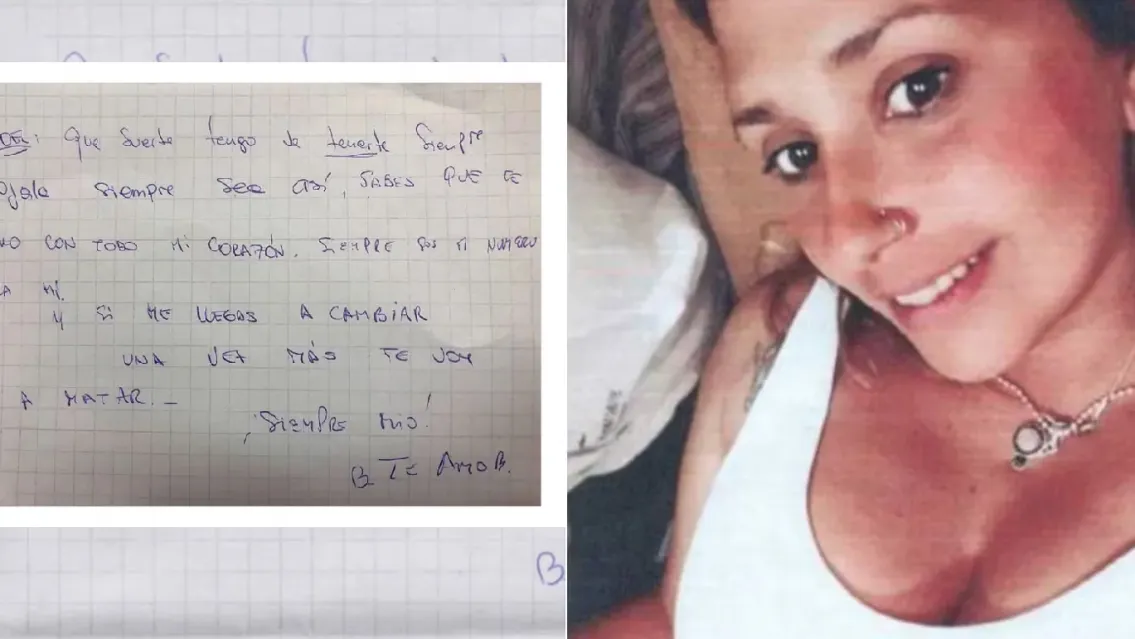 Que suerte tengo de tenerte siempre
Ojala siempre sea así, SABES QUE TE
CON TODO MI CORAZÓN. SIEMPRE SOS MI NUMERO
MÍ.
Y SI ME LLEGAS A CAMBIAR
UNA VEZ MÁS TE VOY
A MATAR.-
¡SIEMPRE MIO!
B TE AMO B.
B